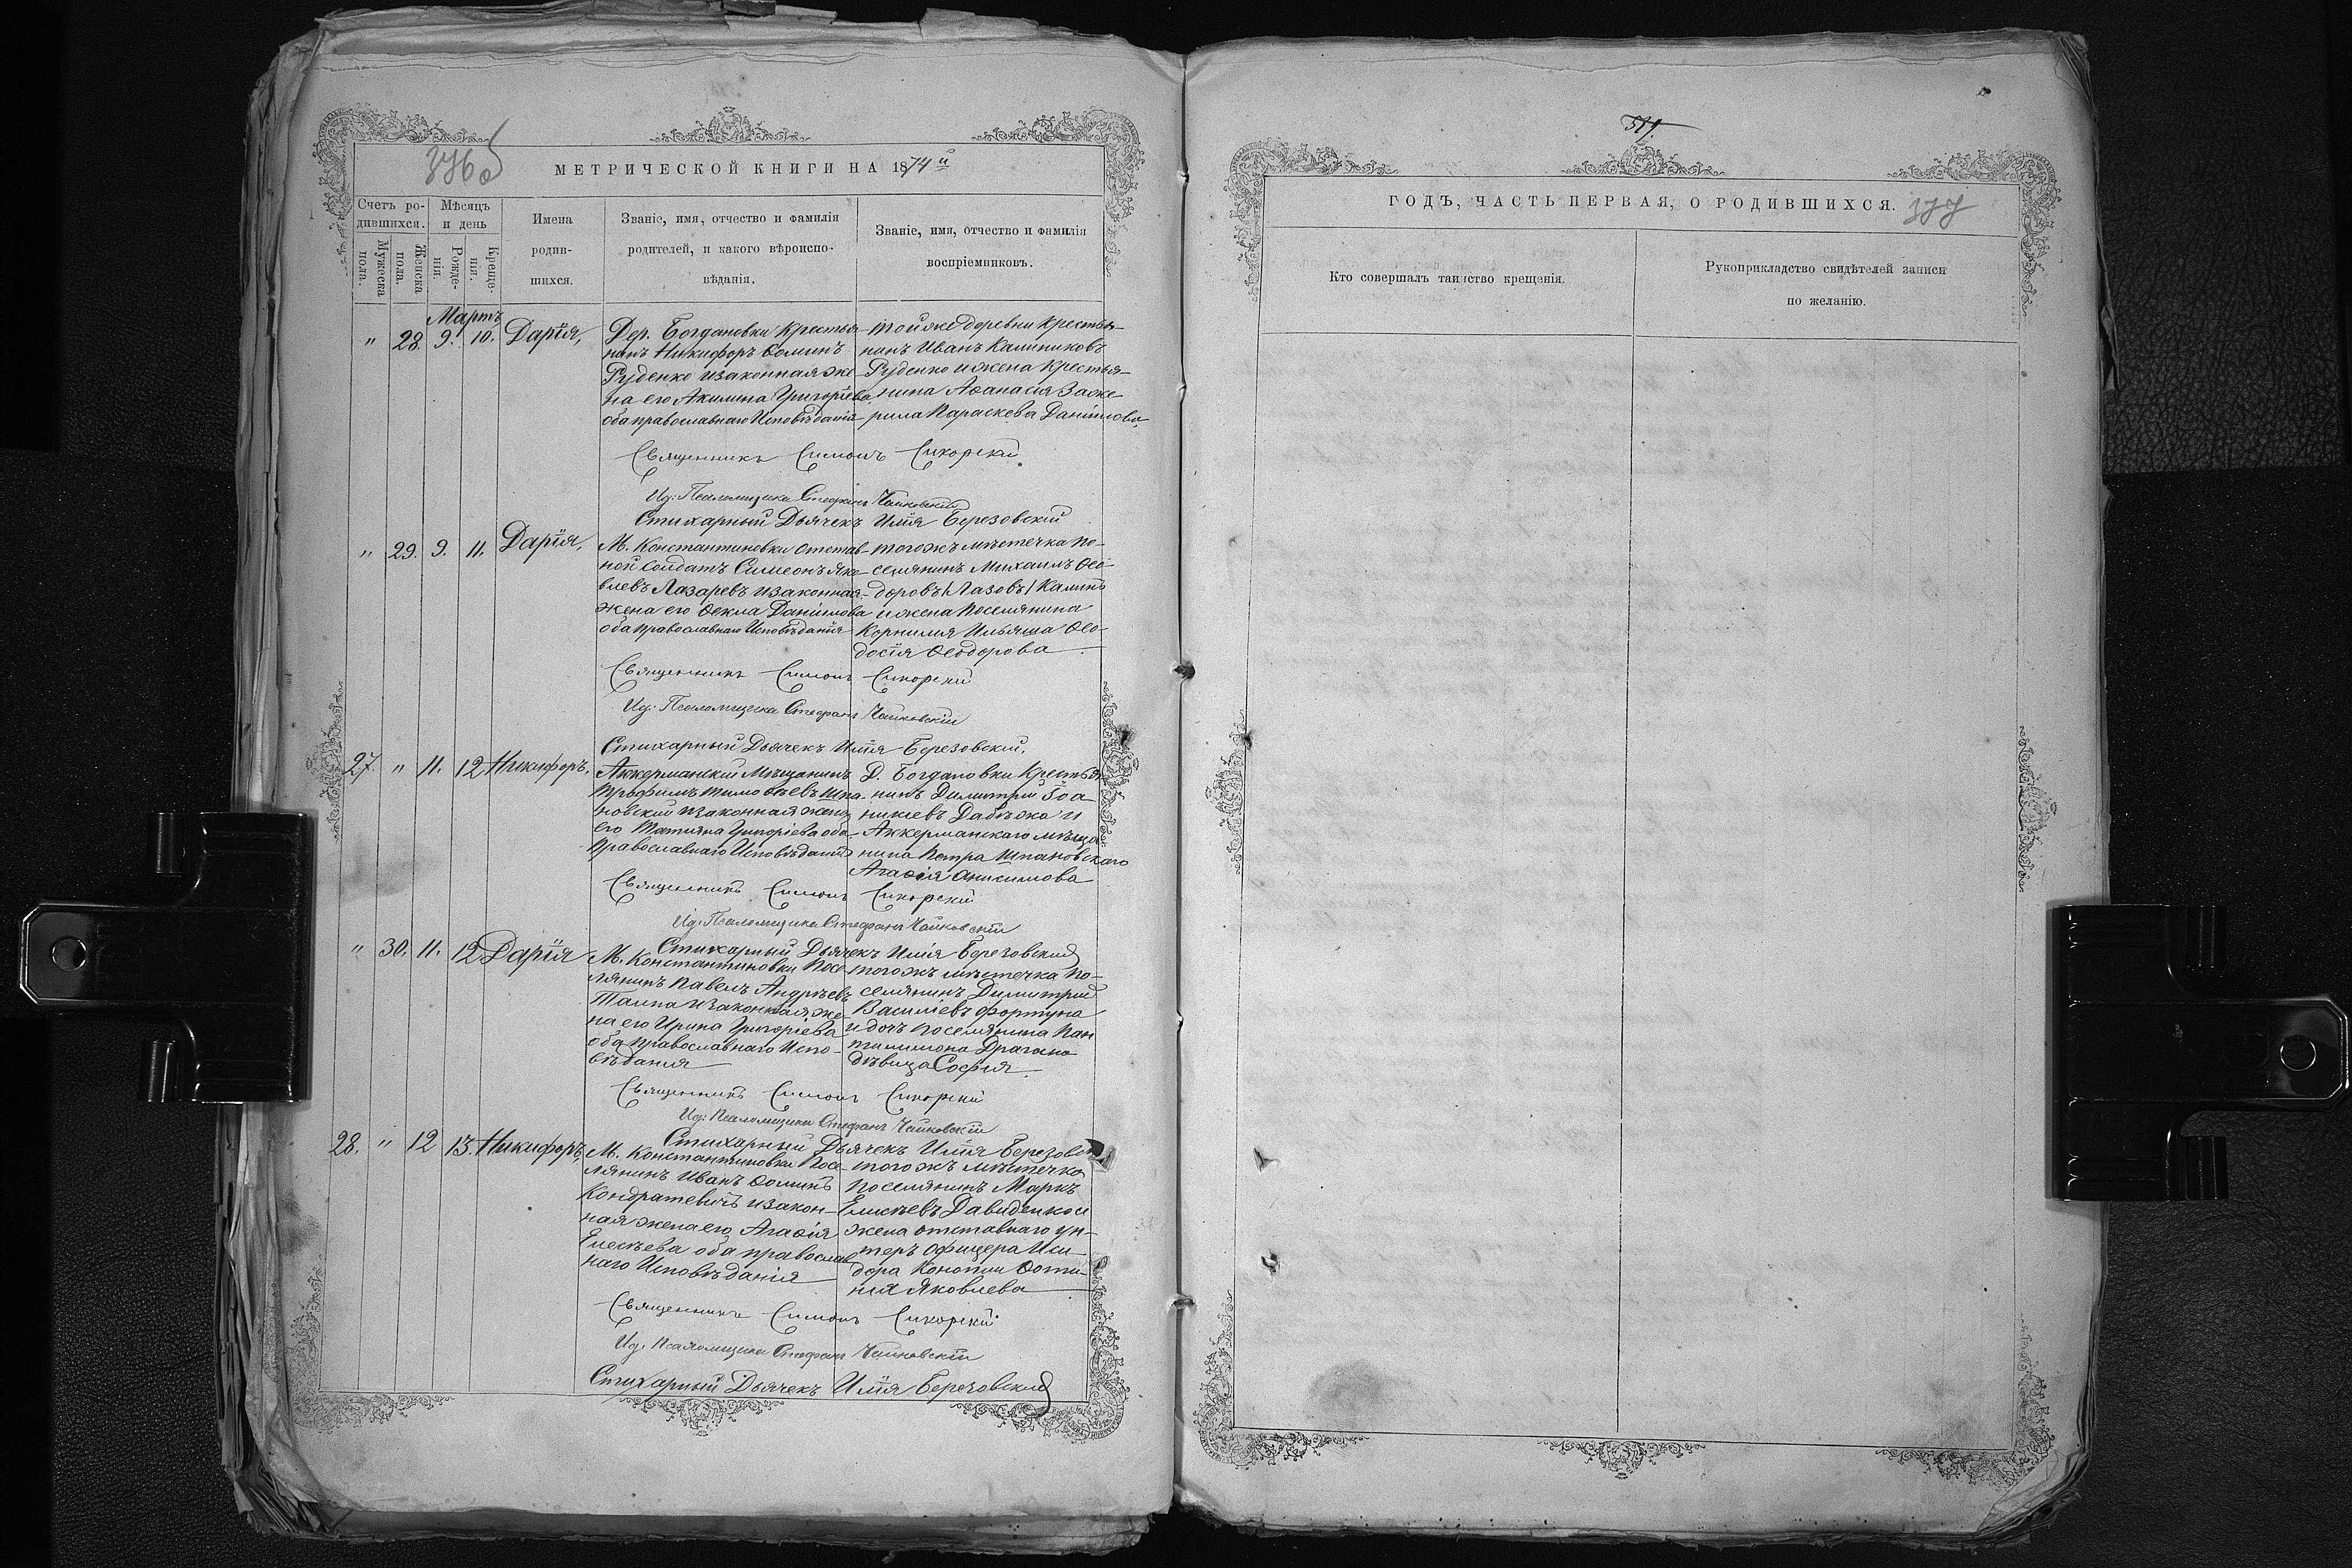 376 об
МЕТРИЧЕСКОЙ КНИГИ НА 1874й
Счетъ ро-
дившихся.
Мѣсяцъ
и день
Мужеска
пола.
Женска
пола.
Рожде-
нія.
Креще-
нія.
Имена
родив-
шихся.
Званіе, имя, отчество и фамилія
родителей, и какого вѣроиспо-
вѣданія.
Званіе, имя, отчество и фамилія
воспріемниковъ.
Мартъ
" 28. 9. 10. Дарія,
Дер. Богдановки Крестья-
нинъ Никифоръ Ѳоминъ
Руденко и законная же-
на его Акилина Григоріева
оба православнаго Исповѣданія
той же деревни Крестья-
нинъ Иванъ Калиниковъ
Руденко и жена Крестья-
нина Аѳанасія Заже-
рила Параскева Даніилова,
Священникъ Симонъ Сикорскій
Ид: Псаломщика Стефанъ Чайковскій
Стихарный Дьячекъ Илія Березовскій
" 29. 9. 11. Дарія,
М. Константиновки отстав-
ной Солдатъ Симеонъ Яко-
влевъ Лазаревъ и законная
жена его Ѳекла Даніилова
оба православнаго Исповѣданія
того жъ мѣстечка по-
селянинъ Михаилъ Ѳео-
доровъ /Лазовъ/
и жена поселянина
Корнилія Ильяша Ѳео-
досія Ѳеодорова
Священникъ Симонъ Сикорскій
Ид: Псаломщика Стефанъ Чайковскій
Стихарный Дьячекъ Илія Березовскій.
27. " 11. 12 Никифоръ,
Аккерманскій Мѣщанинъ
Трофимъ Тимоѳеевъ Шпа-
новскій и законная жена
его Татіяна Григоріева оба
Православнаго Исповѣданія
Д. Богдановки Крестья-
нинъ Димитрій Іоа-
никіевъ Дабѣжа и
Аккерманскаго мѣща-
нина Петра Шпановскаго
Агаѳія Анисимова
Священникъ Симонъ Сикорскій
Ид: Псаломщика Стефанъ Чайковскій
Стихарный Дьячекъ Илія Березовскій
" 30. 11. 12 Дарія
М. Константиновки Посе-
лянинъ Павелъ Андреевъ
Талпа и законная же-
на его Ирина Григоріева
оба православнаго Испо-
вѣданія
того жъ мѣстечка по-
селянинъ Димитрій
Василіевъ Фортуна
и дочь поселянина Пан
телимона Драгана
дѣвица Софія
Священникъ Симонъ Сикорскій
Ид: Псаломщика Стефанъ Чайковскій
Стихарный Дьячекъ Илія Березовск
28. " 12 13. Никифоръ,
М. Константиновки Посе-
лянинъ Иванъ Ѳоминъ
Кондратевичъ и закон-
ная жена его Агаѳія
Елисѣева оба православ
наго Исповѣданія
того жъ мѣстечка
поселянинъ Маркъ
Елисѣевъ Давиденко и
жена отставнаго ун-
теръ офицера Иси-
дора Конопли Ѳоти-
нія Яковлева
Священникъ Симонъ Сикорскій
Ид. Псаломщика Стефанъ Чайковскій
Стихарный Дьячекъ Илія Березовскій
377
ГОДЪ, ЧАСТЬ ПЕРВАЯ, О РОДИВШИХСЯ.
Кто совершалъ таинство крещенія.
Рукоприкладство свидѣтелей записи
по желанію.